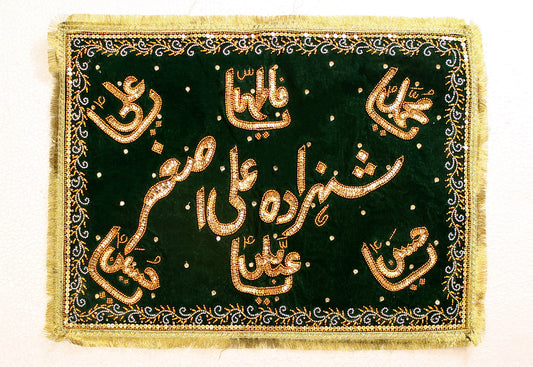 یا محمدؐ یا فاطمہؑ یا علیؑ
شہزادہ علی اصغرؑ
یا حسنؑ یا عباسؑ یا حسینؑ